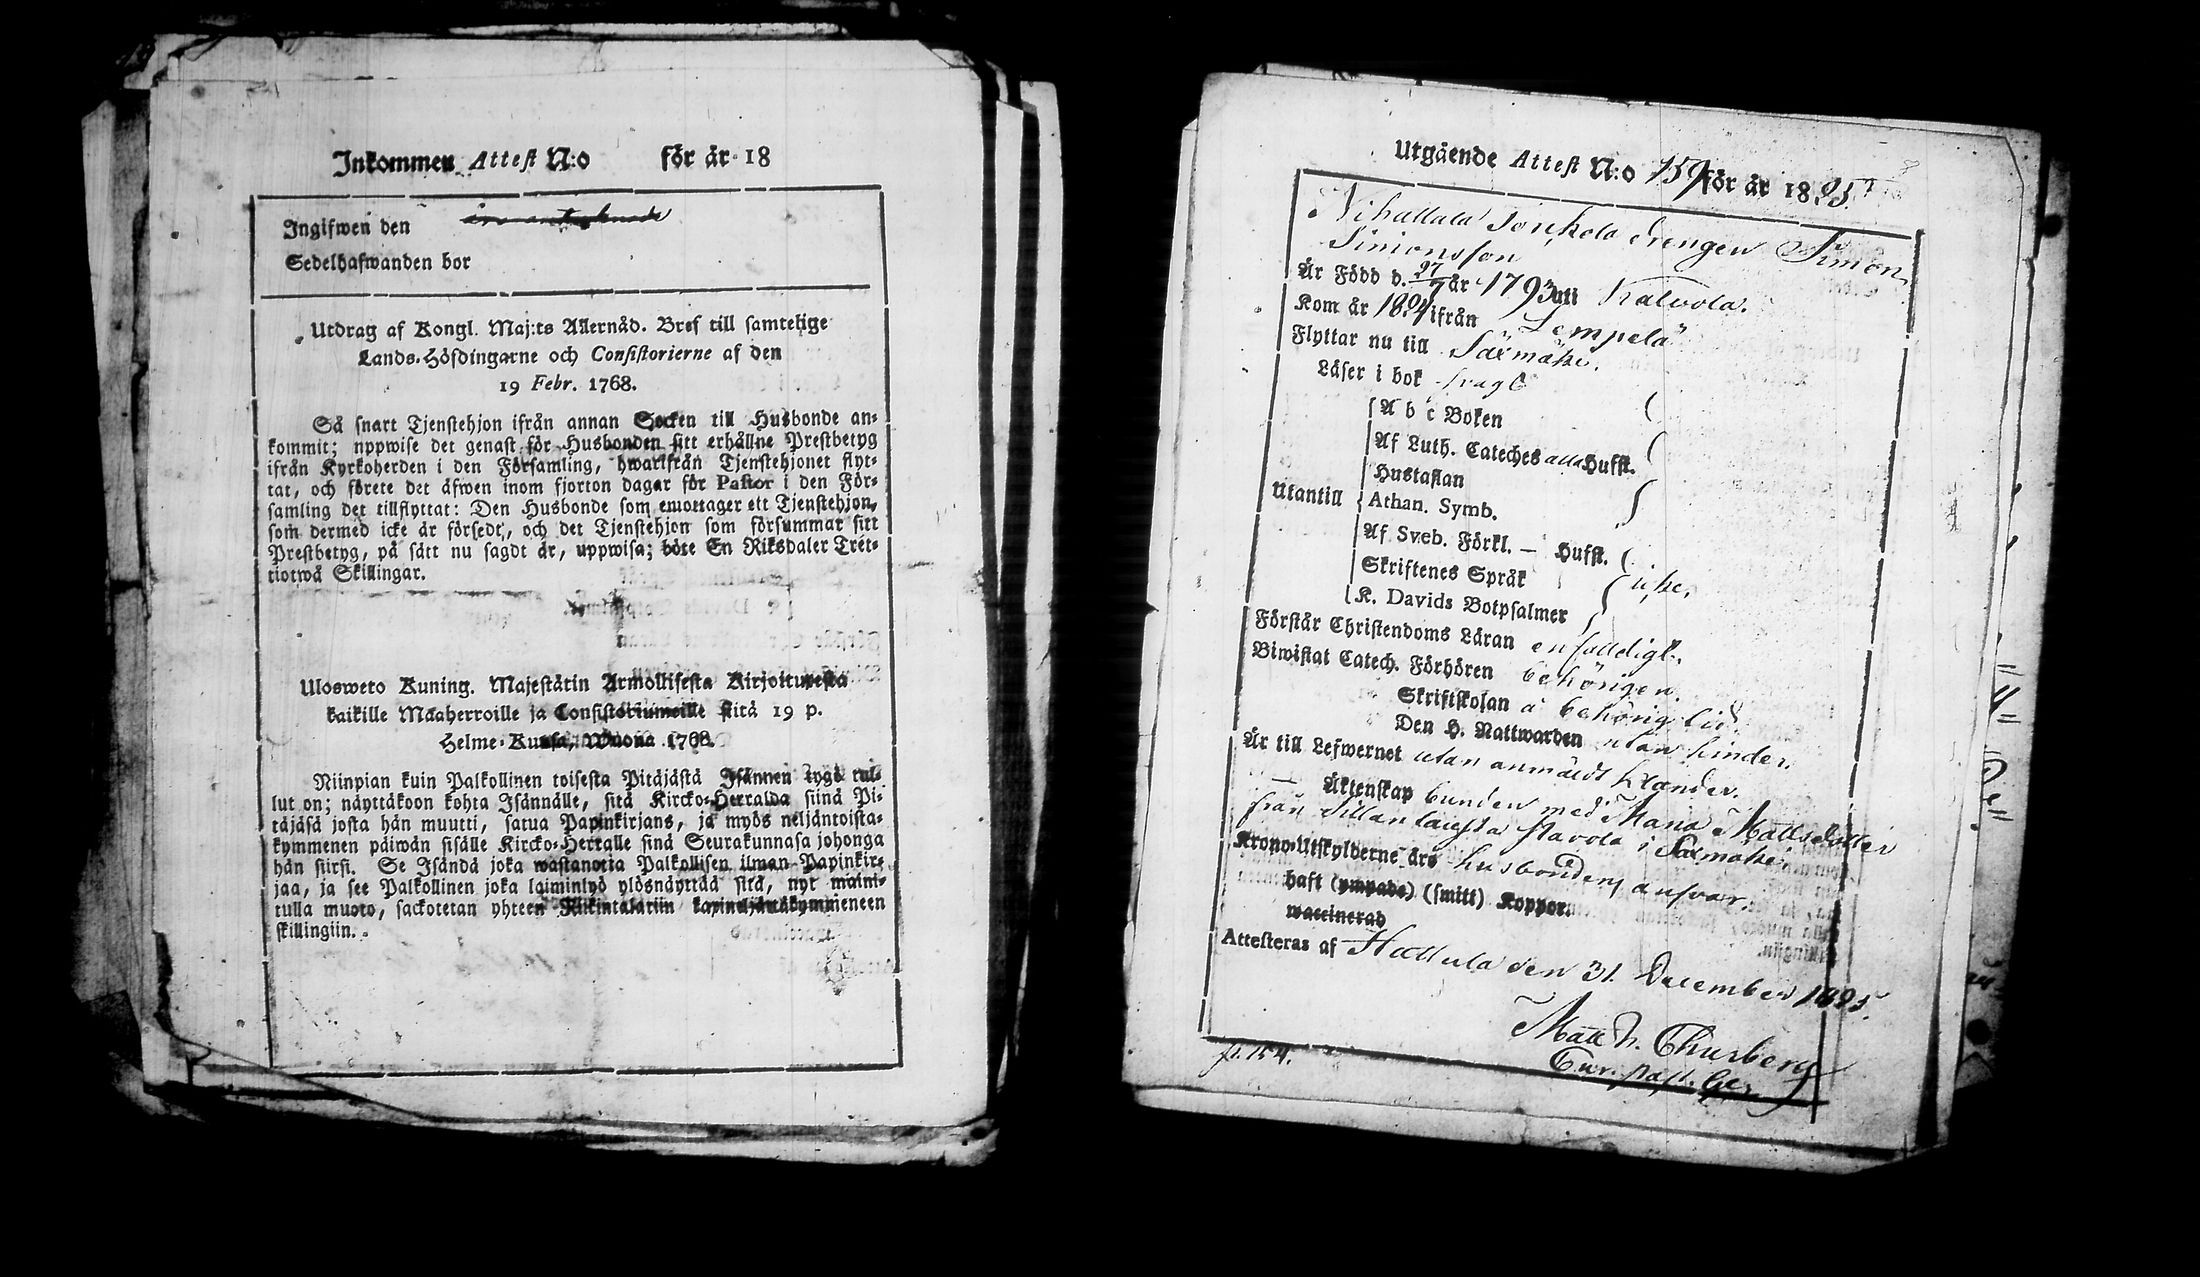 Inkommen Attest N:o för år 18
Ingifwen den
Sedelhafwanden bor
Utdrag af Kongl. Maj:ts Allernåd. Bref till samtelige
Lands-Höfdingarne och Consistorierne af den
19 Febr. 1768.
Så snart Tjenstehjon ifrån annan Socken till Husbonde an-
kommit; nppwise det genast för Husbonden sitt erhållne Prestbetyg
ifrån Kyrkoherden i den Församling, hwarifrån Tjenstehjonet flyt-
tat, och förete det äfwen inom fjorton dagar för Pastor i den För-
samling det tillflyttat: Den Husbonde som emottager ett Tjenstehjon,
som dermed icke är försedt, och det Tjenstehjon som försummar sitt
Prestbetyg, på sätt nu sagdt är, uppwisa; böte En Riksdaler Tret-
tiotwå Skillingar.
Ulosweto Kuning. Majestätin Armollisesta Kirjoituxesta
kaikille Maaherroille ja Consistoriumeille siitä 19 p.
Helme-Kuusa, Wuona 1768.
Niinpian kuin Palkollinen toisesta Pitäjästä Isännen tygö tul-
lut on; näyttäkoon kohta Isännälle, sitä Kircko-Herralda siinä Pi-
täjäsä josta hän muutti, satua Papinkirjans, ja myös neljäntoista-
kymmenen päiwän sisälle Kircko-Herralle sinä Seurakunnasa johonga
hän siirsi. Se Isändä joka wastanotta Palkollisen ilman Papinkir-
jaa, ja see Palkollinen joka laiminlyö ylösnäyttää sitä, nyt maini-
tulla muoto, sackotetan yhteen Riikintalariin kaxineljättäkymmeneen
skillingiin.
Utgående Attest N:o 159 för år 1825.
Nihattula Torkola drengen Simon
Simonsson
Är Född d. 27/7 år 1793 uti Kalvola.
Kom år 18 ifrån Lempelä
Flyttar nu till Säxmäki.
Läser i bok svagt
A b c Boken
Af Luth. Cateches alla Hufst.
Hustaflan
Utantill Athan. Symb.
Af Sveb. Förkl. — Hufst.
Skriftenes Språk icke.
K. Davids Botpsalmer
Förstår Christendoms Läran enfalldigt.
Biwistat Catech. Förhören behörigen
Skriftskolan å behörig tid.
Den H. Nattwarden utan hinder.
Är till Lefwernet utan anmäldt klander.
— Äktenskap bunden med Maria Mattsdotter
från i Säxmäki.
Krono-Utskylderne äro husbondens answar.
haft (ympade) (smitt) Koppor.
waccinerad
Attesteras af Hattula den 31. December 1825.
Matth. Thurberg
p. 154.